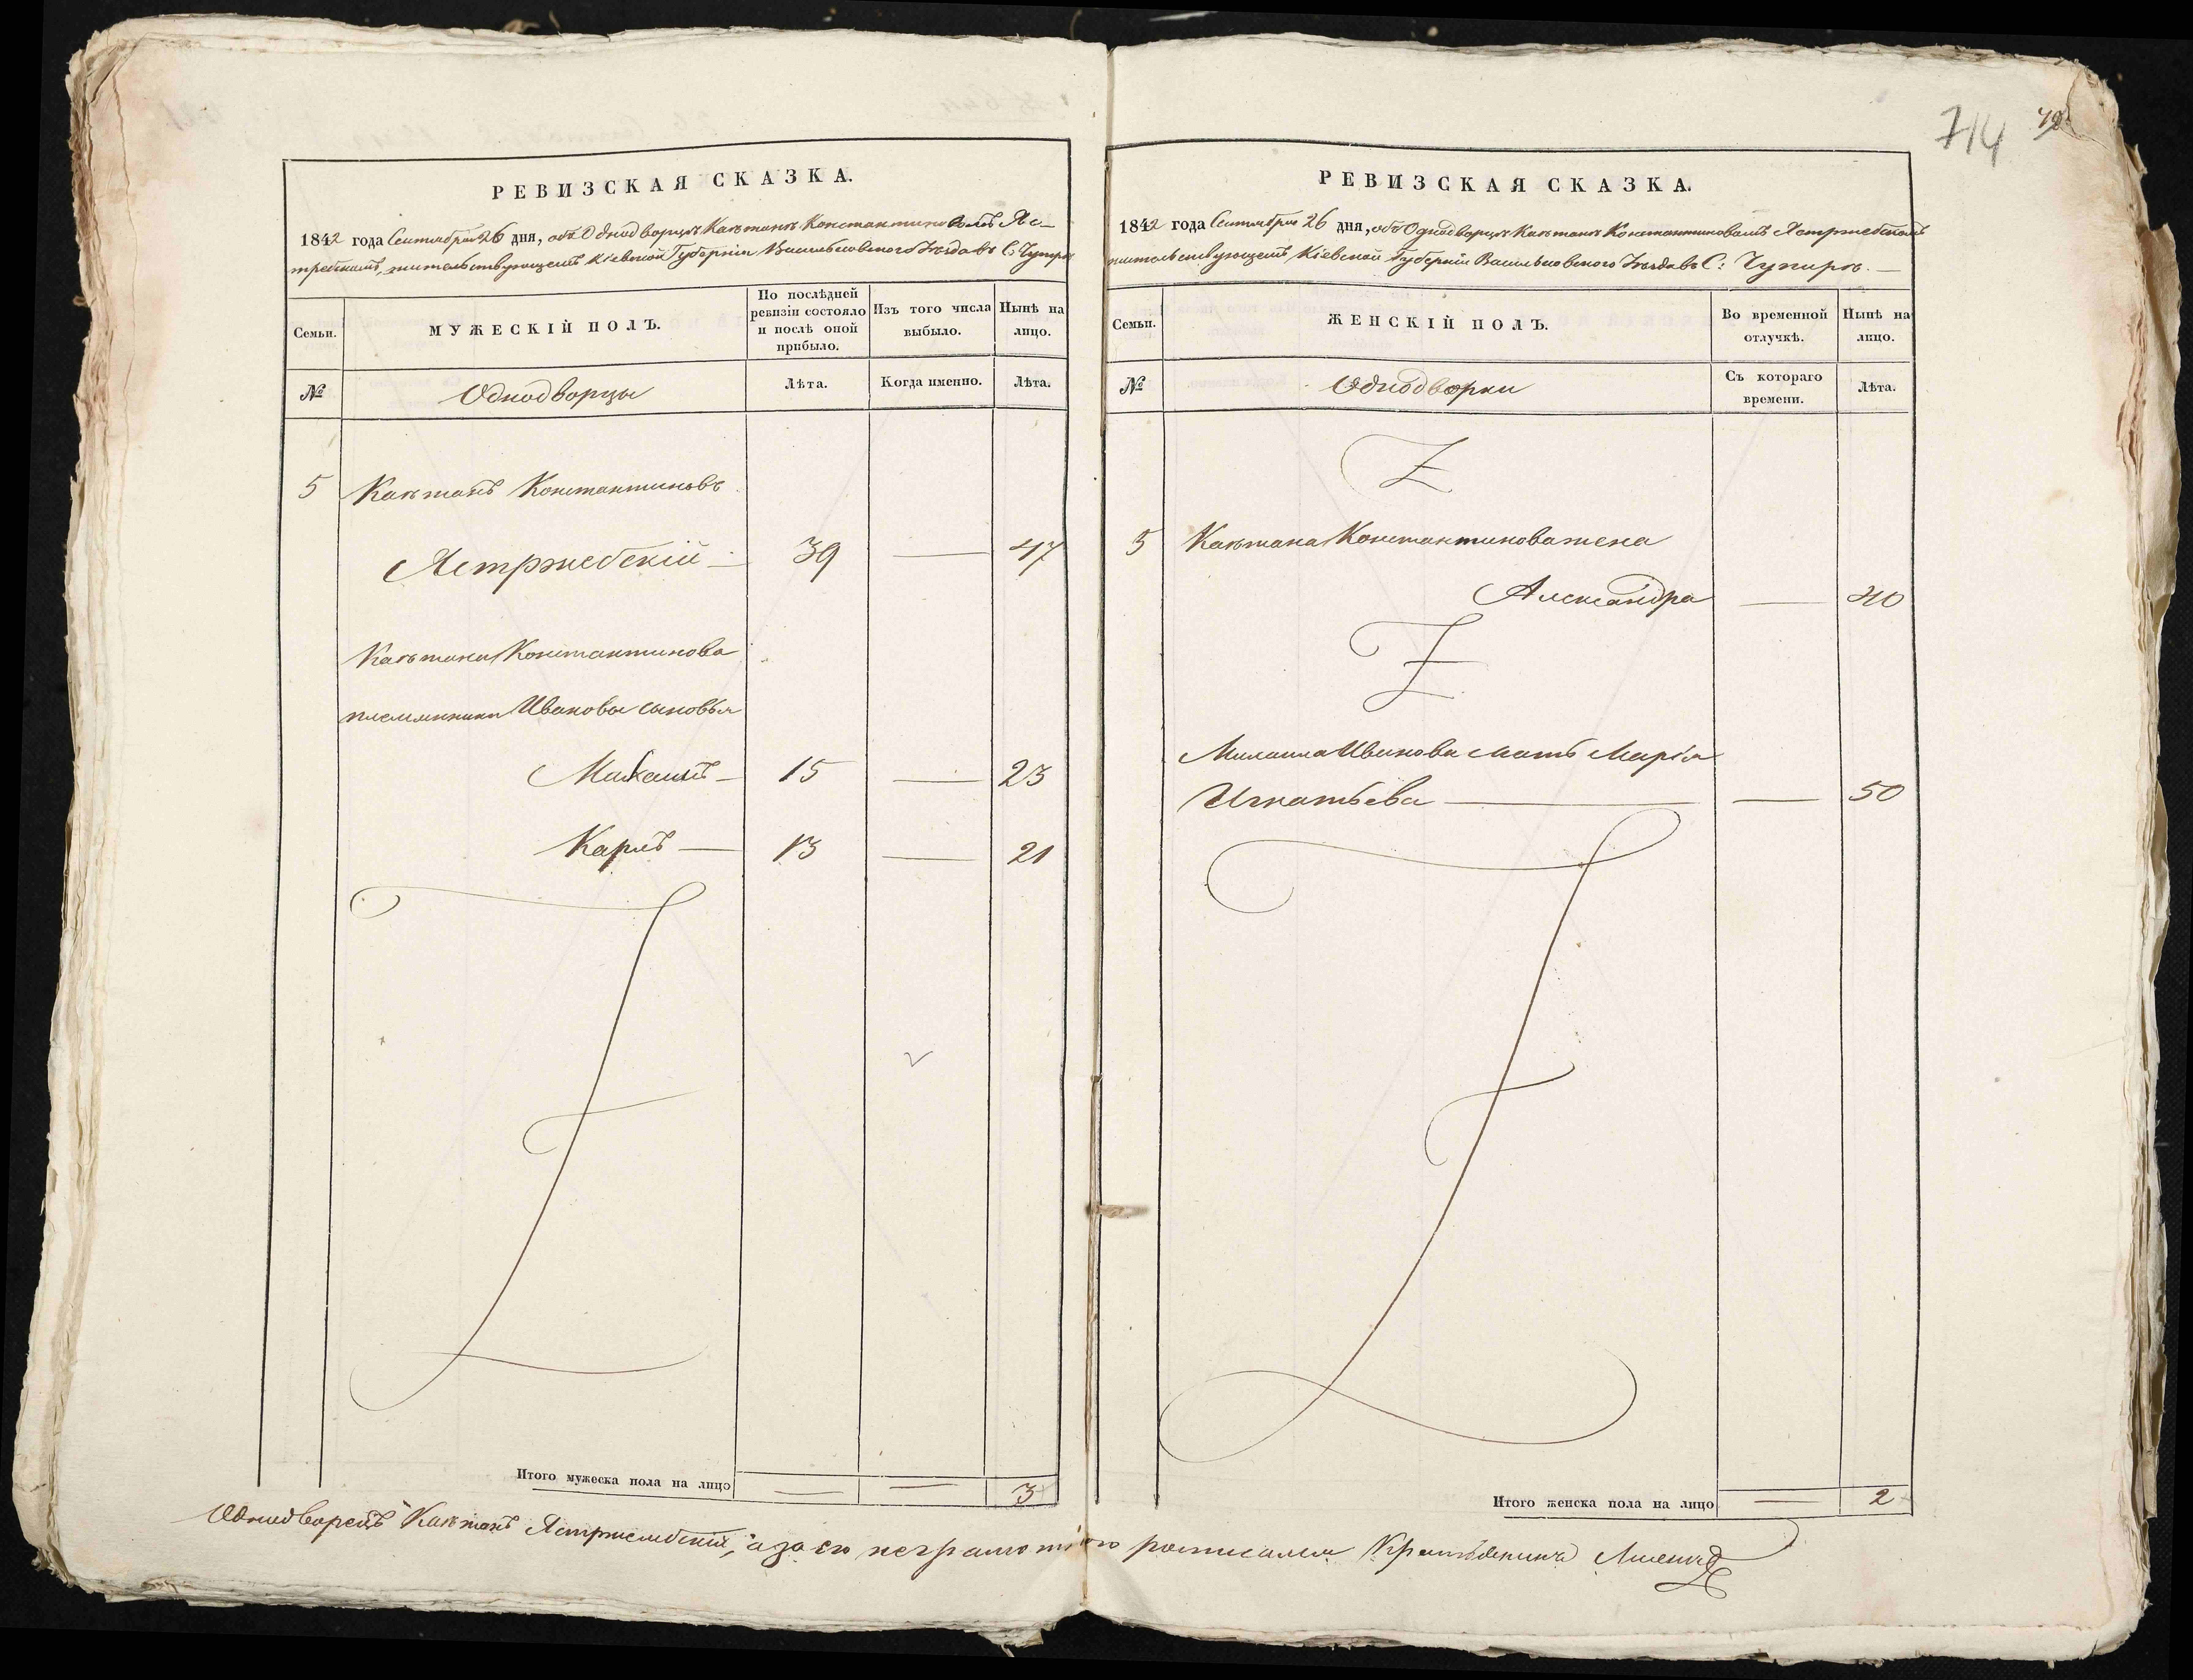 714
РЕВИЗСКАЯ СКАЗКА.
1842 года Сентября 26 дня, объ Однодворцѣ Каэтанѣ Константиновомъ Яс-
требскомъ, жительствующемъ Кіевской Губерніи Васильковскаго Уѣзда въ С: Чупирѣ
Семьи.
МУЖЕСКІЙ ПОЛЪ.
По послѣдней ревизіи состояло и послѣ оной прибыло.
Изъ того числа выбыло.
Нынѣ на лицо.
№
Однодворцы
Лѣта.
Когда именно.
Лѣта.
5 Каэтанъ Константиновъ
Ястржебскій — 39 — 47
Каэтана Константинова
племянники Ивановы сыновья
Михаилъ — 15 — 23
Карлъ — 13 — 21
Итого мужеска пола на лицо — — 3
РЕВИЗСКАЯ СКАЗКА.
1842 года Сентября 26 дня, объ Однодворцѣ Каэтанѣ Константиновомъ Ястржебскомъ
жительствующемъ Кіевской Губерніи Васильковскаго Уѣзда въ С: Чупирѣ. —
Семьи.
ЖЕНСКІЙ ПОЛЪ.
Во временной отлучкѣ.
Нынѣ на лицо.
№
Однодворки
Съ котораго времени.
Лѣта.
5 Каэтана Константинова жена
Александра — 40
Михаила Иванова мать Марія
Игнатьева — — 50
Итого женска пола на лицо — 2
Однодворецъ Каэтанъ Ястржембскій, а за его неграмотного росписался